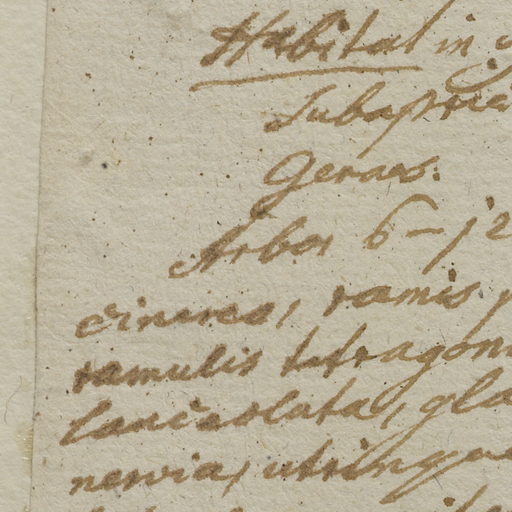 Habitat in
Subapric
Geraes.
Arbor 6-12
cinerea, ramis
ramulis tetragon
lanceolata, gla
nervia, utrinque